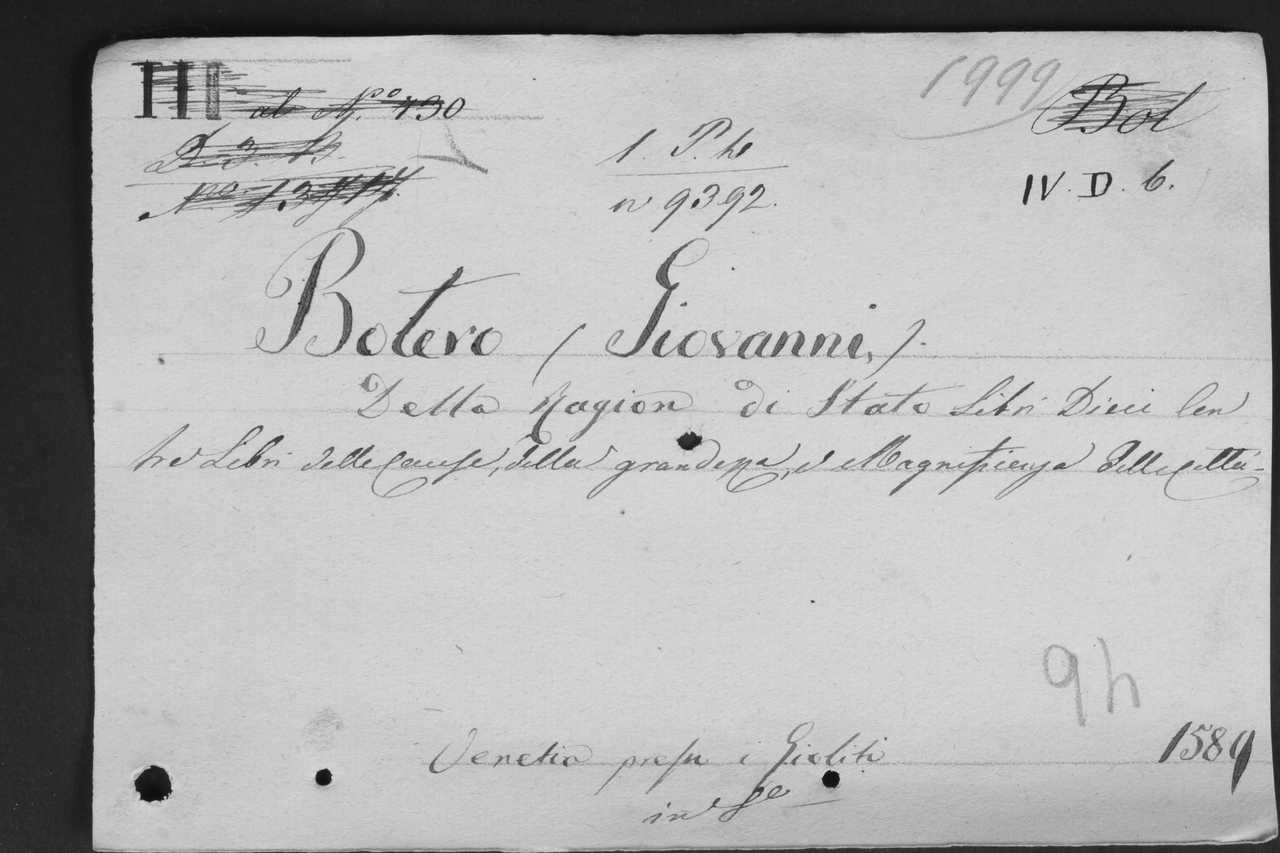 III ab Nº 430
1999
Bot
D. 3.
1. P. h
nº 9392.
IV. D. 6.
Botero (Giovanni,).
Della Ragion di Stato Libri Dieci Con
tre Libri delle Cause, della grandezza, e Magnificenza delle Città-
94
Venetia presso i Gioliti
1589
in 8º